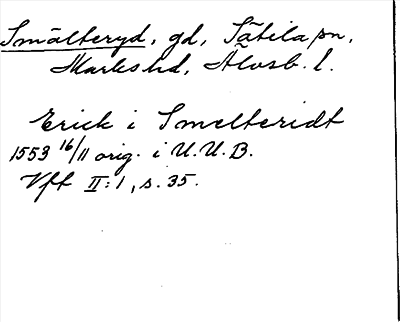 Smälteryd, gd, Sätila sn,
Marks hd, Älvsb. l.
Erick i Smelteridt
1553 16/11 orig. i U.U.B.
Vft II:1, s. 35.